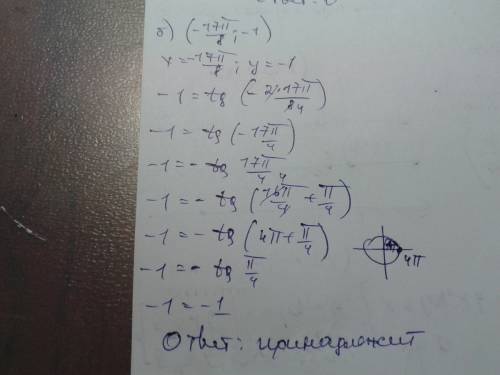 б) (-17π/8; -1)
x = -17π/8; y = -1
-1 = tg (-2·17π/84)
-1 = tg (-17π/4)
-1 = - tg 17π/4
-1 = - tg (16π/4 + π/4)
-1 = - tg (4π + π/4)
4π
-1 = - tg π/4
-1 = -1
Ответ: принадлежит